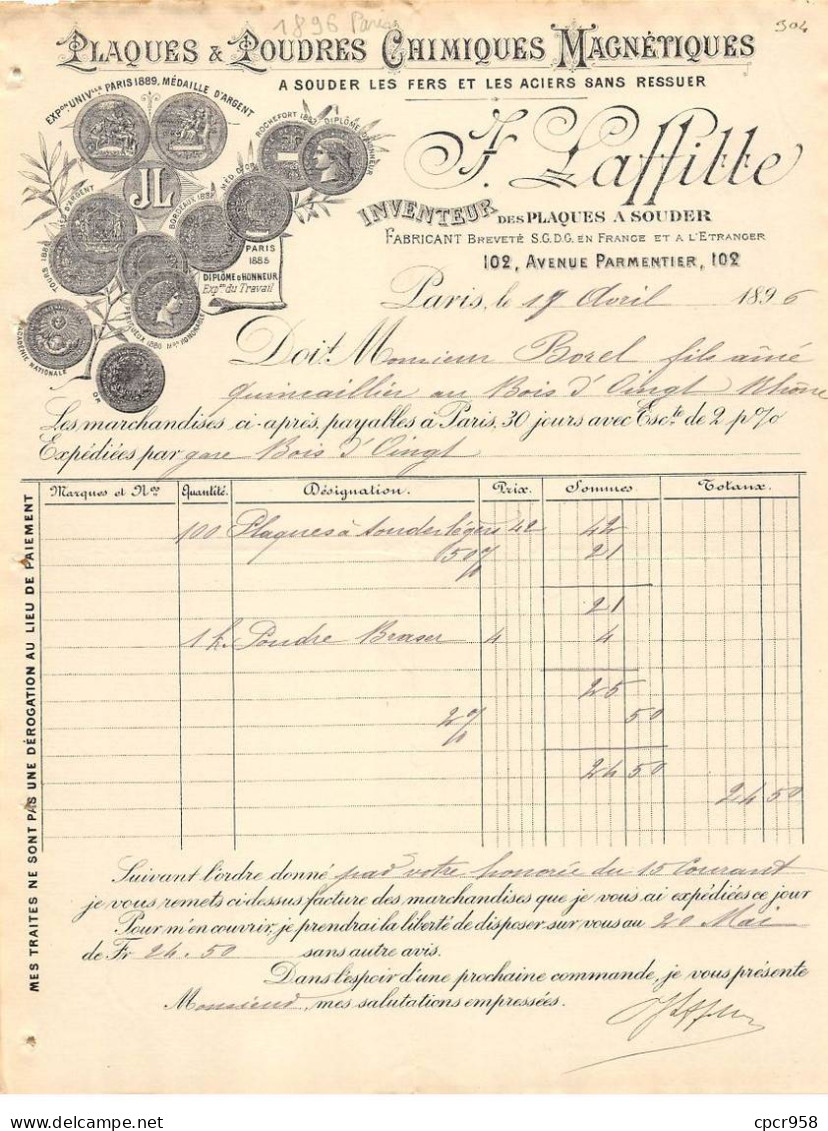 1896 Paris
304
PLAQUES & POUDRES CHIMIQUES MAGNÉTIQUES
A SOUDER LES FERS ET LES ACIERS SANS RESSUER
EXPon UNIVlle PARIS 1889, MÉDAILLE D'ARGENT
ROCHEFORT 1883 DIPLÔME D'HONNEUR
JL
BORDEAUX 1882
MED. D'OR
PARIS
1885
DIPLÔME D'HONNEUR
Expon du Travail
ACADÉMIE NATIONALE
OR
J. Laffitte
INVENTEUR
DES PLAQUES A SOUDER
FABRICANT BREVETÉ S.G.D.G. EN FRANCE ET A L'ETRANGER
102, AVENUE PARMENTIER, 102
Paris, le 19 Avril 1896
Doit Monsieur Borel fils aîné
quincaillier au Bois d'Oingt Rhône
Les marchandises ci-après, payables à Paris, 30 jours avec Escte de 2 p%
Expédiées par gare Bois d'Oingt
Marques et Nos Quantité. Désignation. Prix. Sommes Totaux.
100 Plaques à souder légers 42 42
50% 21
21
1 k. Poudre Braser 4 4
25
2% 50
24 50
24 50
MES TRAITES NE SONT PAS UNE DÉROGATION AU LIEU DE PAIEMENT
Suivant l'ordre donné par votre honorée du 15 Courant
je vous remets ci-dessus facture des marchandises que je vous ai expédiées ce jour
Pour m'en couvrir, je prendrai la liberté de disposer sur vous au 20 Mai
de Fr 24.50 sans autre avis.
Dans l'espoir d'une prochaine commande, je vous présente
Monsieur, mes salutations empressées.
cpcr958